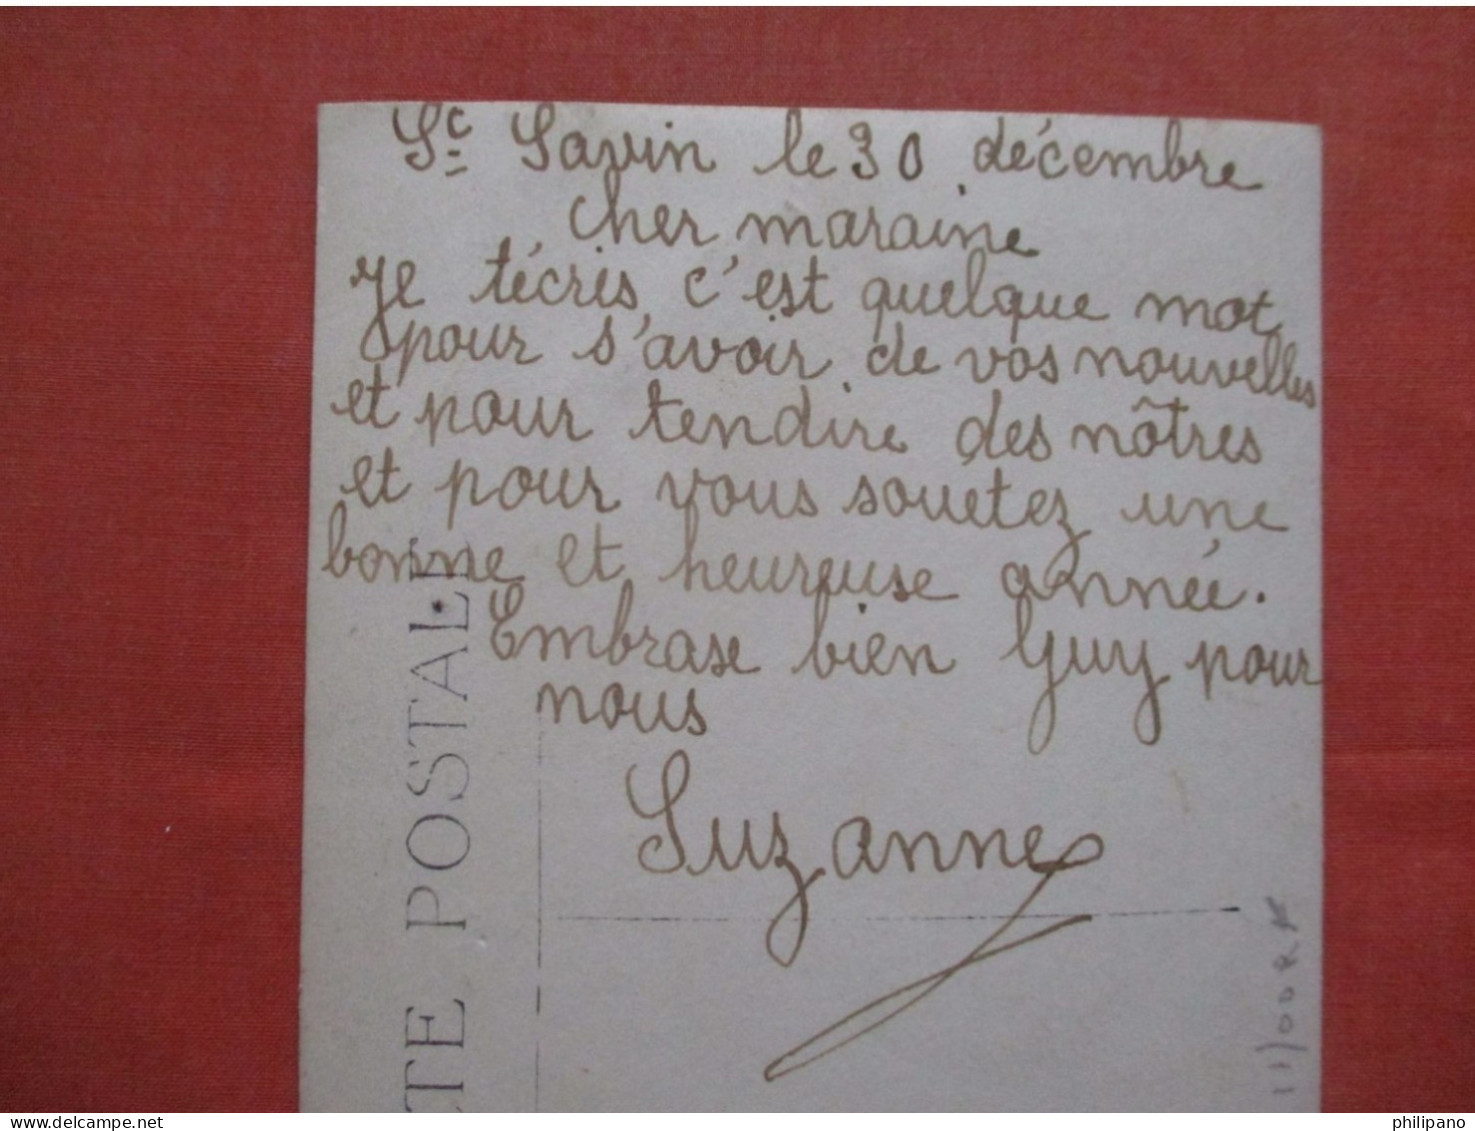 St Savin le 30 décembre
cher maraine
Je técris, c'est quelque mot
pour s'avoir de vos nouvelles
et pour tendire des nôtres
et pour vous souetez une
bonne et heureuse année.
Embrase bien Guy pour
nous
Suzanne
TE POSTALE
philipano